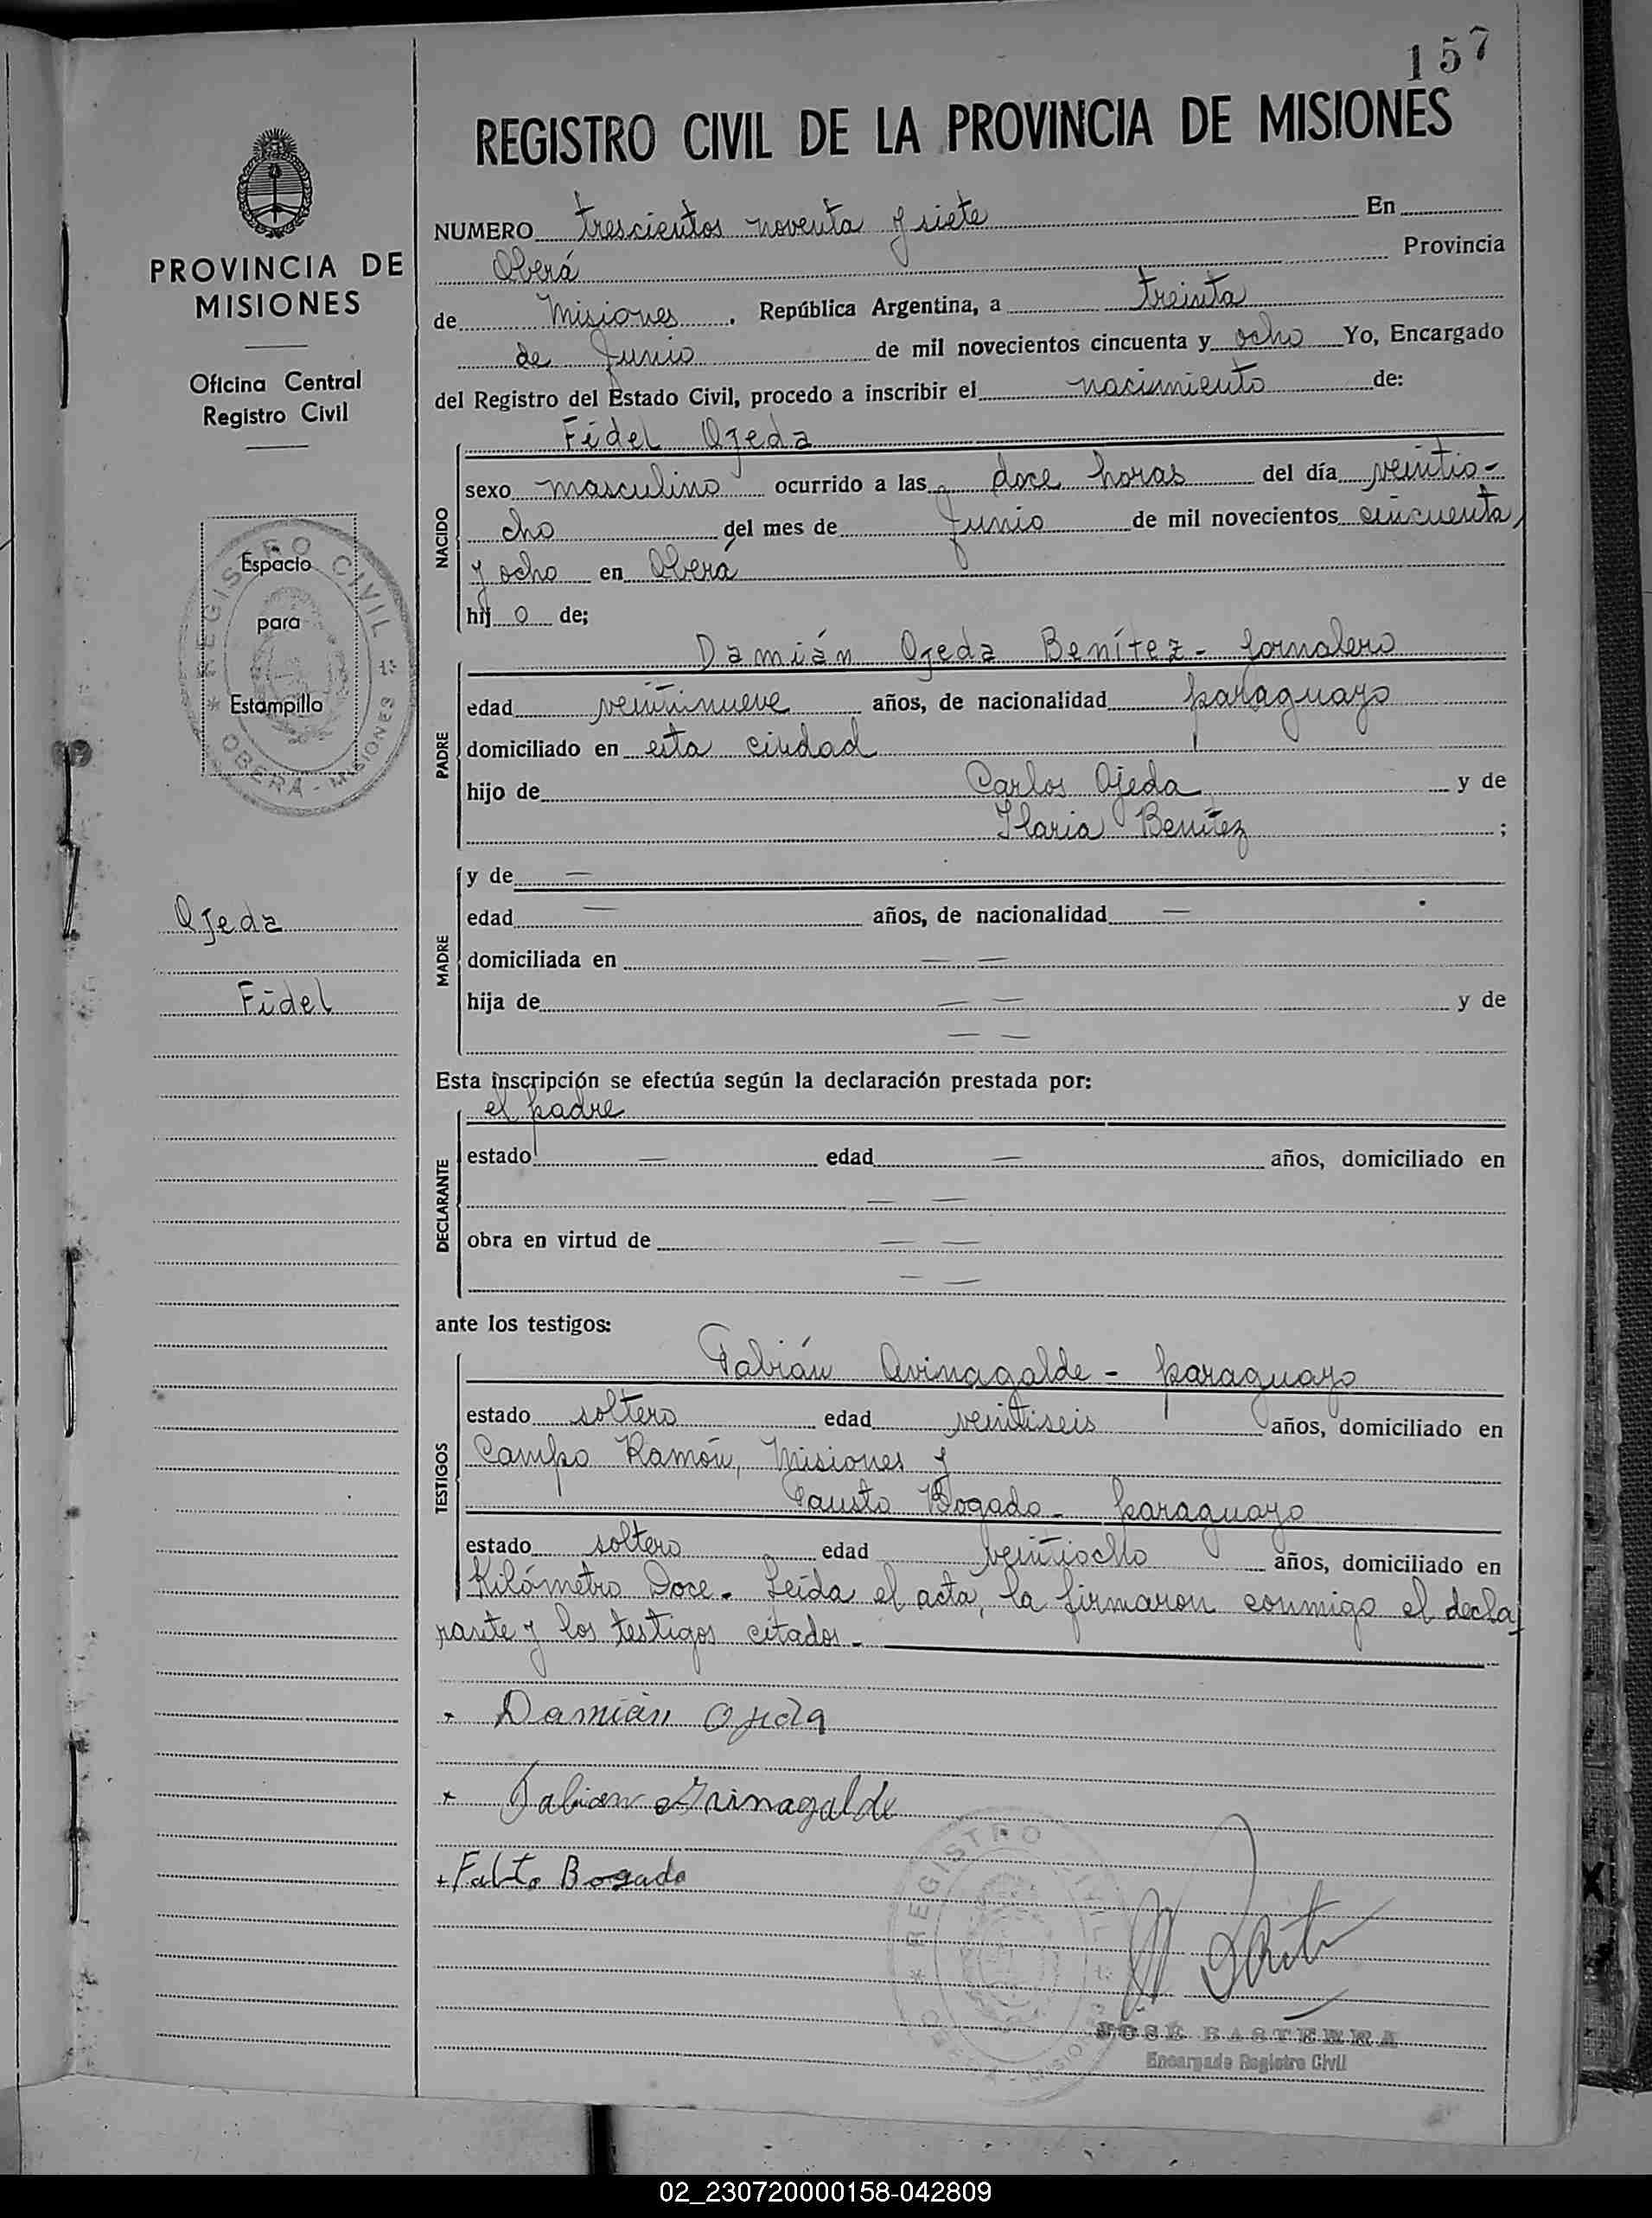 157
REGISTRO CIVIL DE LA PROVINCIA DE MISIONES
PROVINCIA DE
MISIONES
Oficina Central
Registro Civil
REGISTRO CIVIL
OBERÁ - MISIONES
Espacio
para
Estampillo
Ojeda
Fidel
NUMERO trescientos noventa y siete En
Oberá Provincia
de Misiones, República Argentina, a treinta
de Junio de mil novecientos cincuenta y ocho Yo, Encargado
del Registro del Estado Civil, procedo a inscribir el nacimiento de:
NACIDO
Fidel Ojeda
sexo masculino ocurrido a las doce horas del día veintio-
cho del mes de Junio de mil novecientos cincuenta
y ocho en Oberá
hij o de;
PADRE
Damián Ojeda Benítez - Jornalero
edad veintinueve años, de nacionalidad paraguayo
domiciliado en esta ciudad
hijo de Carlos Ojeda y de
Ilaria Benítez ;
MADRE
y de —
edad — años, de nacionalidad —
domiciliada en — —
hija de — — y de
— —
Esta inscripción se efectúa según la declaración prestada por:
DECLARANTE
el padre
estado — edad — años, domiciliado en
— —
obra en virtud de — —
— —
ante los testigos:
TESTIGOS
Fabián Avinagalde - paraguayo
estado soltero edad veintiseis años, domiciliado en
Campo Ramón, Misiones y
Fausto Bogado - paraguayo
estado soltero edad veintiocho años, domiciliado en
Kilómetro Doce. Leída el acta, la firmaron conmigo el decla
rante y los testigos citados.-
+ Damián Ojeda
+ Fabian Arinagalde
+ Falto Bogado
REGISTRO CIVIL
JOSÉ BASTERRA
Encargado Registro Civil
02_230720000158-042809